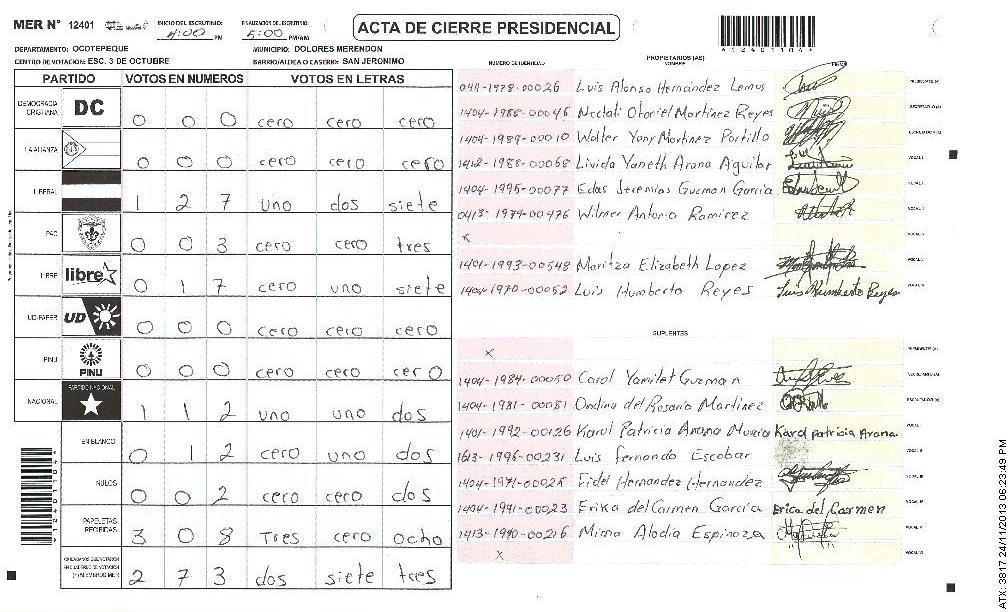 MER N° 12401
INICIO DEL ESCRUTINIO
4:00 PM
FINALIZACION DEL ESCRUTINIO
5:00 PM/AM
ACTA DE CIERRE PRESIDENCIAL
DEPARTAMENTO: OCOTEPEQUE
MUNICIPIO: DOLORES MERENDON
CENTRO DE VOTACION: ESC. 3 DE OCTUBRE
BARRIO/ALDEA O CASERIO: SAN JERONIMO
PARTIDO VOTOS EN NUMEROS VOTOS EN LETRAS
DEMOCRACIA CRISTIANA DC 0 0 0 cero cero cero
LA ALIANZA 0 0 0 cero cero cero
LIBERAL 1 2 7 uno dos siete
PAC 0 0 3 cero cero tres
LIBRE libre 0 1 7 cero uno siete
UD-FAPER UD 0 0 0 cero cero cero
PINU PINU 0 0 0 cero cero cero
NACIONAL PARTIDO NACIONAL 1 1 2 uno uno dos
EN BLANCO 0 1 2 cero uno dos
NULOS 0 0 2 cero cero dos
PAPELETAS RECIBIDAS 3 0 8 Tres cero ocho
CIUDADANOS QUE VOTARON EN CUADERNO DE VOTACION (+) MIEMBROS MER 2 7 3 dos siete tres
PROPIETARIOS (AS)
NUMERO DE IDENTIDAD NOMBRE FIRMA
0411-1978-00026 Luis Alonso Hernández Lemus PRESIDENTE (A)
1404-1988-00046 Nectali Otoniel Martinez Reyes SECRETARIO (A)
1404-1989-00010 Walter Yony Martinez Portillo ESCRUTADOR (A)
1412-1988-00068 Livida Yaneth Arana Aguilar VOCAL I
1404-1995-00077 Edas Jeremias Guzman Garcia VOCAL II
0413-1974-00476 Wilmer Antonio Ramirez
x
1401-1993-00548 Maritza Elizabeth Lopez
1404-1970-00052 Luis Humberto Reyes Luis Humberto Reyes
SUPLENTES
x PRESIDENTE (A)
1404-1984-00050 Carol Yamilet Guzman SECRETARIO (A)
1404-1981-00081 Ondina del Rosario Martinez ESCRUTADOR (A)
1401-1992-00126 Karol Patricia Arana Murcia Karol patricia Arana VOCAL I
1613-1996-00231 Luis Fernando Escobar VOCAL II
1404-1971-00025 Fidel Hernandez Hernandez VOCAL III
1404-1991-00023 Erika del Carmen García Erica del Carmen VOCAL IV
1413-1990-00216 Mirna Alodia Espinoza VOCAL V
x VOCAL VI
ATX: 3817 24/11/2013 06:23:49 PM